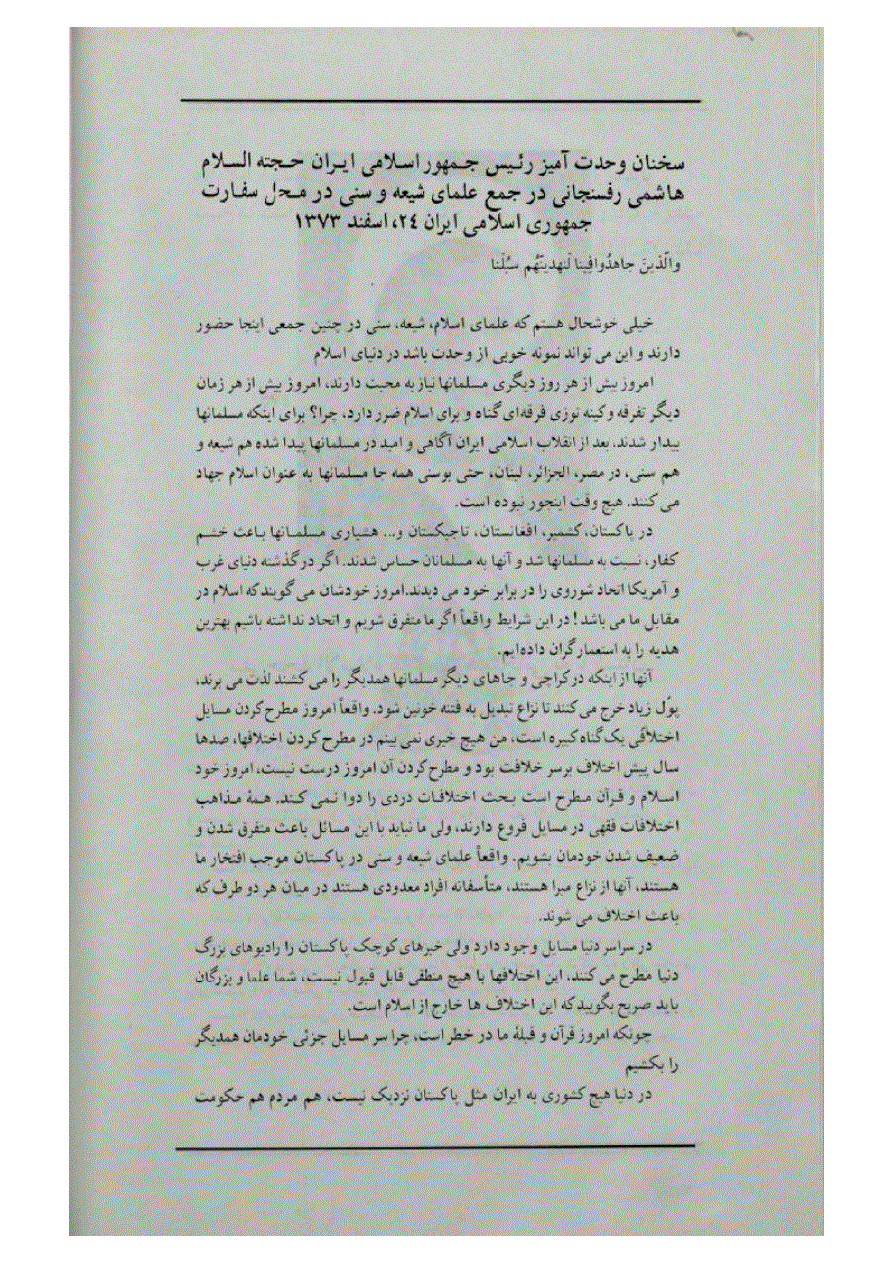 سخنان وحدت آمیز رئیس جمهور اسلامی ایران حجته السلام
هاشمی رفسنجانی در جمع علمای شیعه و سنی در محل سفارت
جمهوری اسلامی ایران ۲٤، اسفند ۱۳۷۳
والّذینَ جاهدُوافِینا لَنهدِیَنَّهُم سُبُلَنا
خیلی خوشحال هستم که علمای اسلام، شیعه، سنی در چنین جمعی اینجا حضور
دارند و این می تواند نمونه خوبی از وحدت باشد در دنیای اسلام
امروز بیش از هر روز دیگری مسلمانها نیاز به محبت دارند، امروز بیش از هر زمان
دیگر تفرقه و کینه توزی فرقه‌ای گناه و برای اسلام ضرر دارد، چرا؟ برای اینکه مسلمانها
بیدار شدند، بعد از انقلاب اسلامی ایران آگاهی و امید در مسلمانها پیدا شده هم شیعه و
هم سنی، در مصر، الجزائر، لبنان، حتی بوسنی همه جا مسلمانها به عنوان اسلام جهاد
می کنند. هیچ وقت اینجور نبوده است.
در پاکستان، کشمیر، افغانستان، تاجیکستان و... هشیاری مسلمانها باعث خشم
کفار، نسبت به مسلمانها شد و آنها به مسلمانان حساس شدند. اگر در گذشته دنیای غرب
و آمریکا اتحاد شوروی را در برابر خود می دیدند.امروز خودشان می گویند که اسلام در
مقابل ما می باشد! در این شرایط واقعاً اگر ما متفرق شویم و اتحاد نداشته باشیم بهترین
هدیه را به استعمارگران داده‌ایم.
آنها از اینکه در کراچی و جاهای دیگر مسلمانها همدیگر را می کشند لذت می برند،
پول زیاد خرج می کنند تا نزاع تبدیل به فتنه خونین شود. واقعاً امروز مطرح کردن مسایل
اختلاقی یک گناه کبیره است، من هیچ خیری نمی بینم در مطرح کردن اختلافها، صدها
سال پیش اختلاف برسر خلافت بود و مطرح کردن آن امروز درست نیست، امروز خود
اسلام و قرآن مطرح است بحث اختلافات دردی را دوا نمی کند. همهٔ مذاهب
اختلافات فقهی در مسایل فروع دارند، ولی ما نباید با این مسائل باعث متفرق شدن و
ضعیف شدن خودمان بشویم. واقعاً علمای شیعه و سنی در پاکستان موجب افتخار ما
هستند، آنها از نزاع مبرا هستند، متأسفانه افراد معدودی هستند در میان هر دو طرف که
باعث اختلاف می شوند.
در سراسر دنیا مسایل وجود دارد ولی خبرهای کوچک پاکستان را رادیوهای بزرگ
دنیا مطرح می کنند. این اختلافها با هیچ منطقی قابل قبول نیست، شما علما و بزرگان
باید صریح بگویید که این اختلاف ها خارج از اسلام است.
چونکه امروز قرآن و قبلهٔ ما در خطر است، چرا سر مسایل جزئی خودمان همدیگر
را بکشیم
در دنیا هیچ کشوری به ایران مثل پاکستان نزدیک نیست، هم مردم هم حکومت